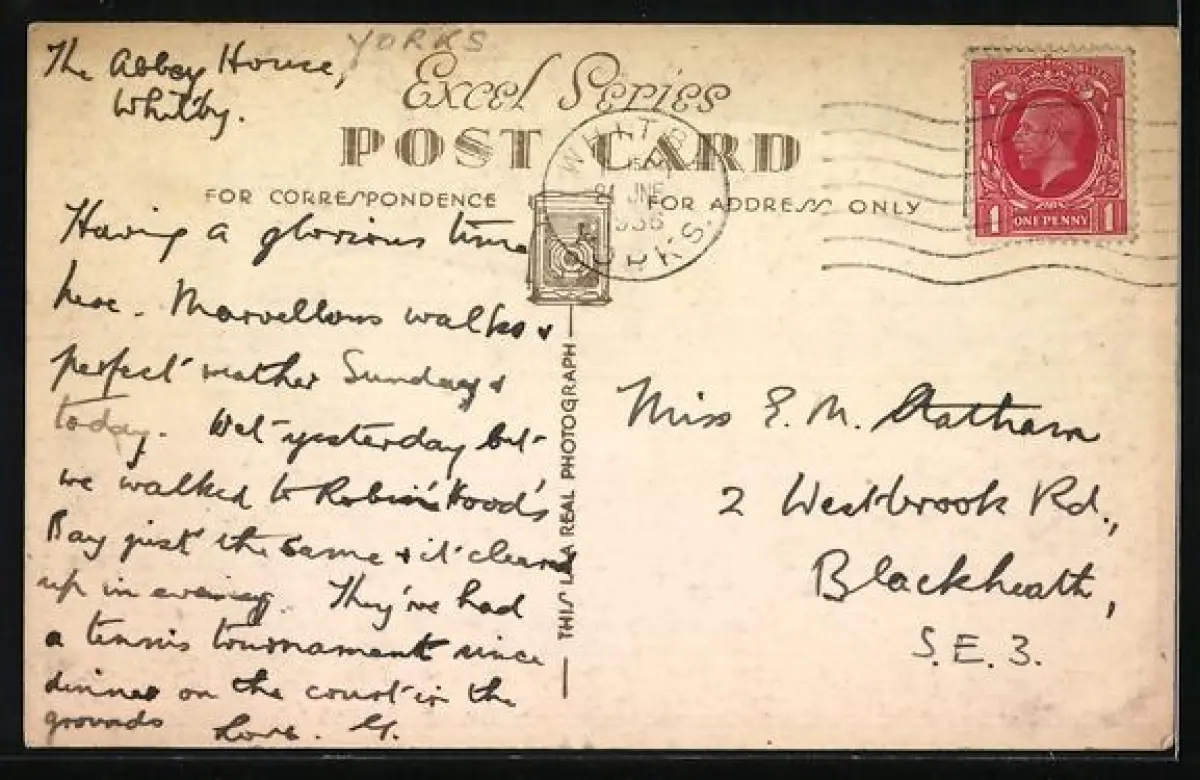 YORKS
The Abbey House,
Whitby.
Excel Series
POST CARD
WHITBY
JNE
1936
YORKS.
FOR CORRESPONDENCE
FOR ADDRESS ONLY
1 ONE PENNY 1
Having a glorious time
here. Marvellous walks &
perfect weather Sunday &
today. Wet yesterday but
we walked to Robin Hood's
Bay just the same & it cleared
up in evening. They've had
a tennis tournament since
dinner on the court in the
grounds Love.
THIS IS A REAL PHOTOGRAPH
Miss E. M.
2 Westbrook Rd.,
Blackheath,
S.E.3.